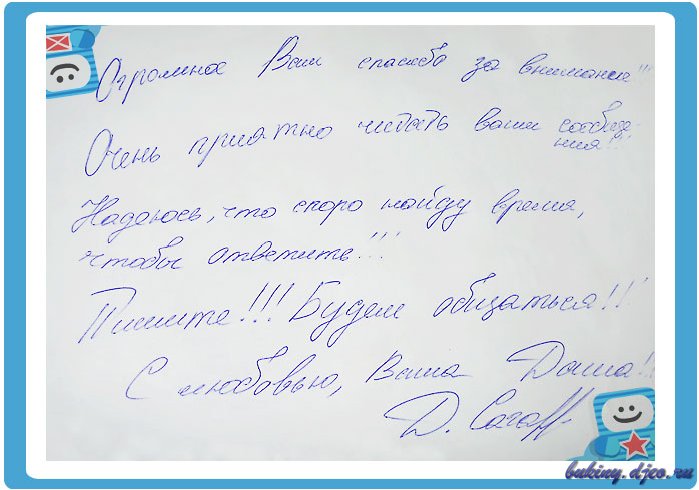 Огромное Вам спасибо за внимание!!!
Очень приятно читать ваши сообще-
ния!!!
Надеюсь, что скоро найду время,
чтобы ответить!!!
Пишите!!! Будем общаться!!!
С любовью, Ваша Даша!!
D. Сагалова
bukiny.djco.ru